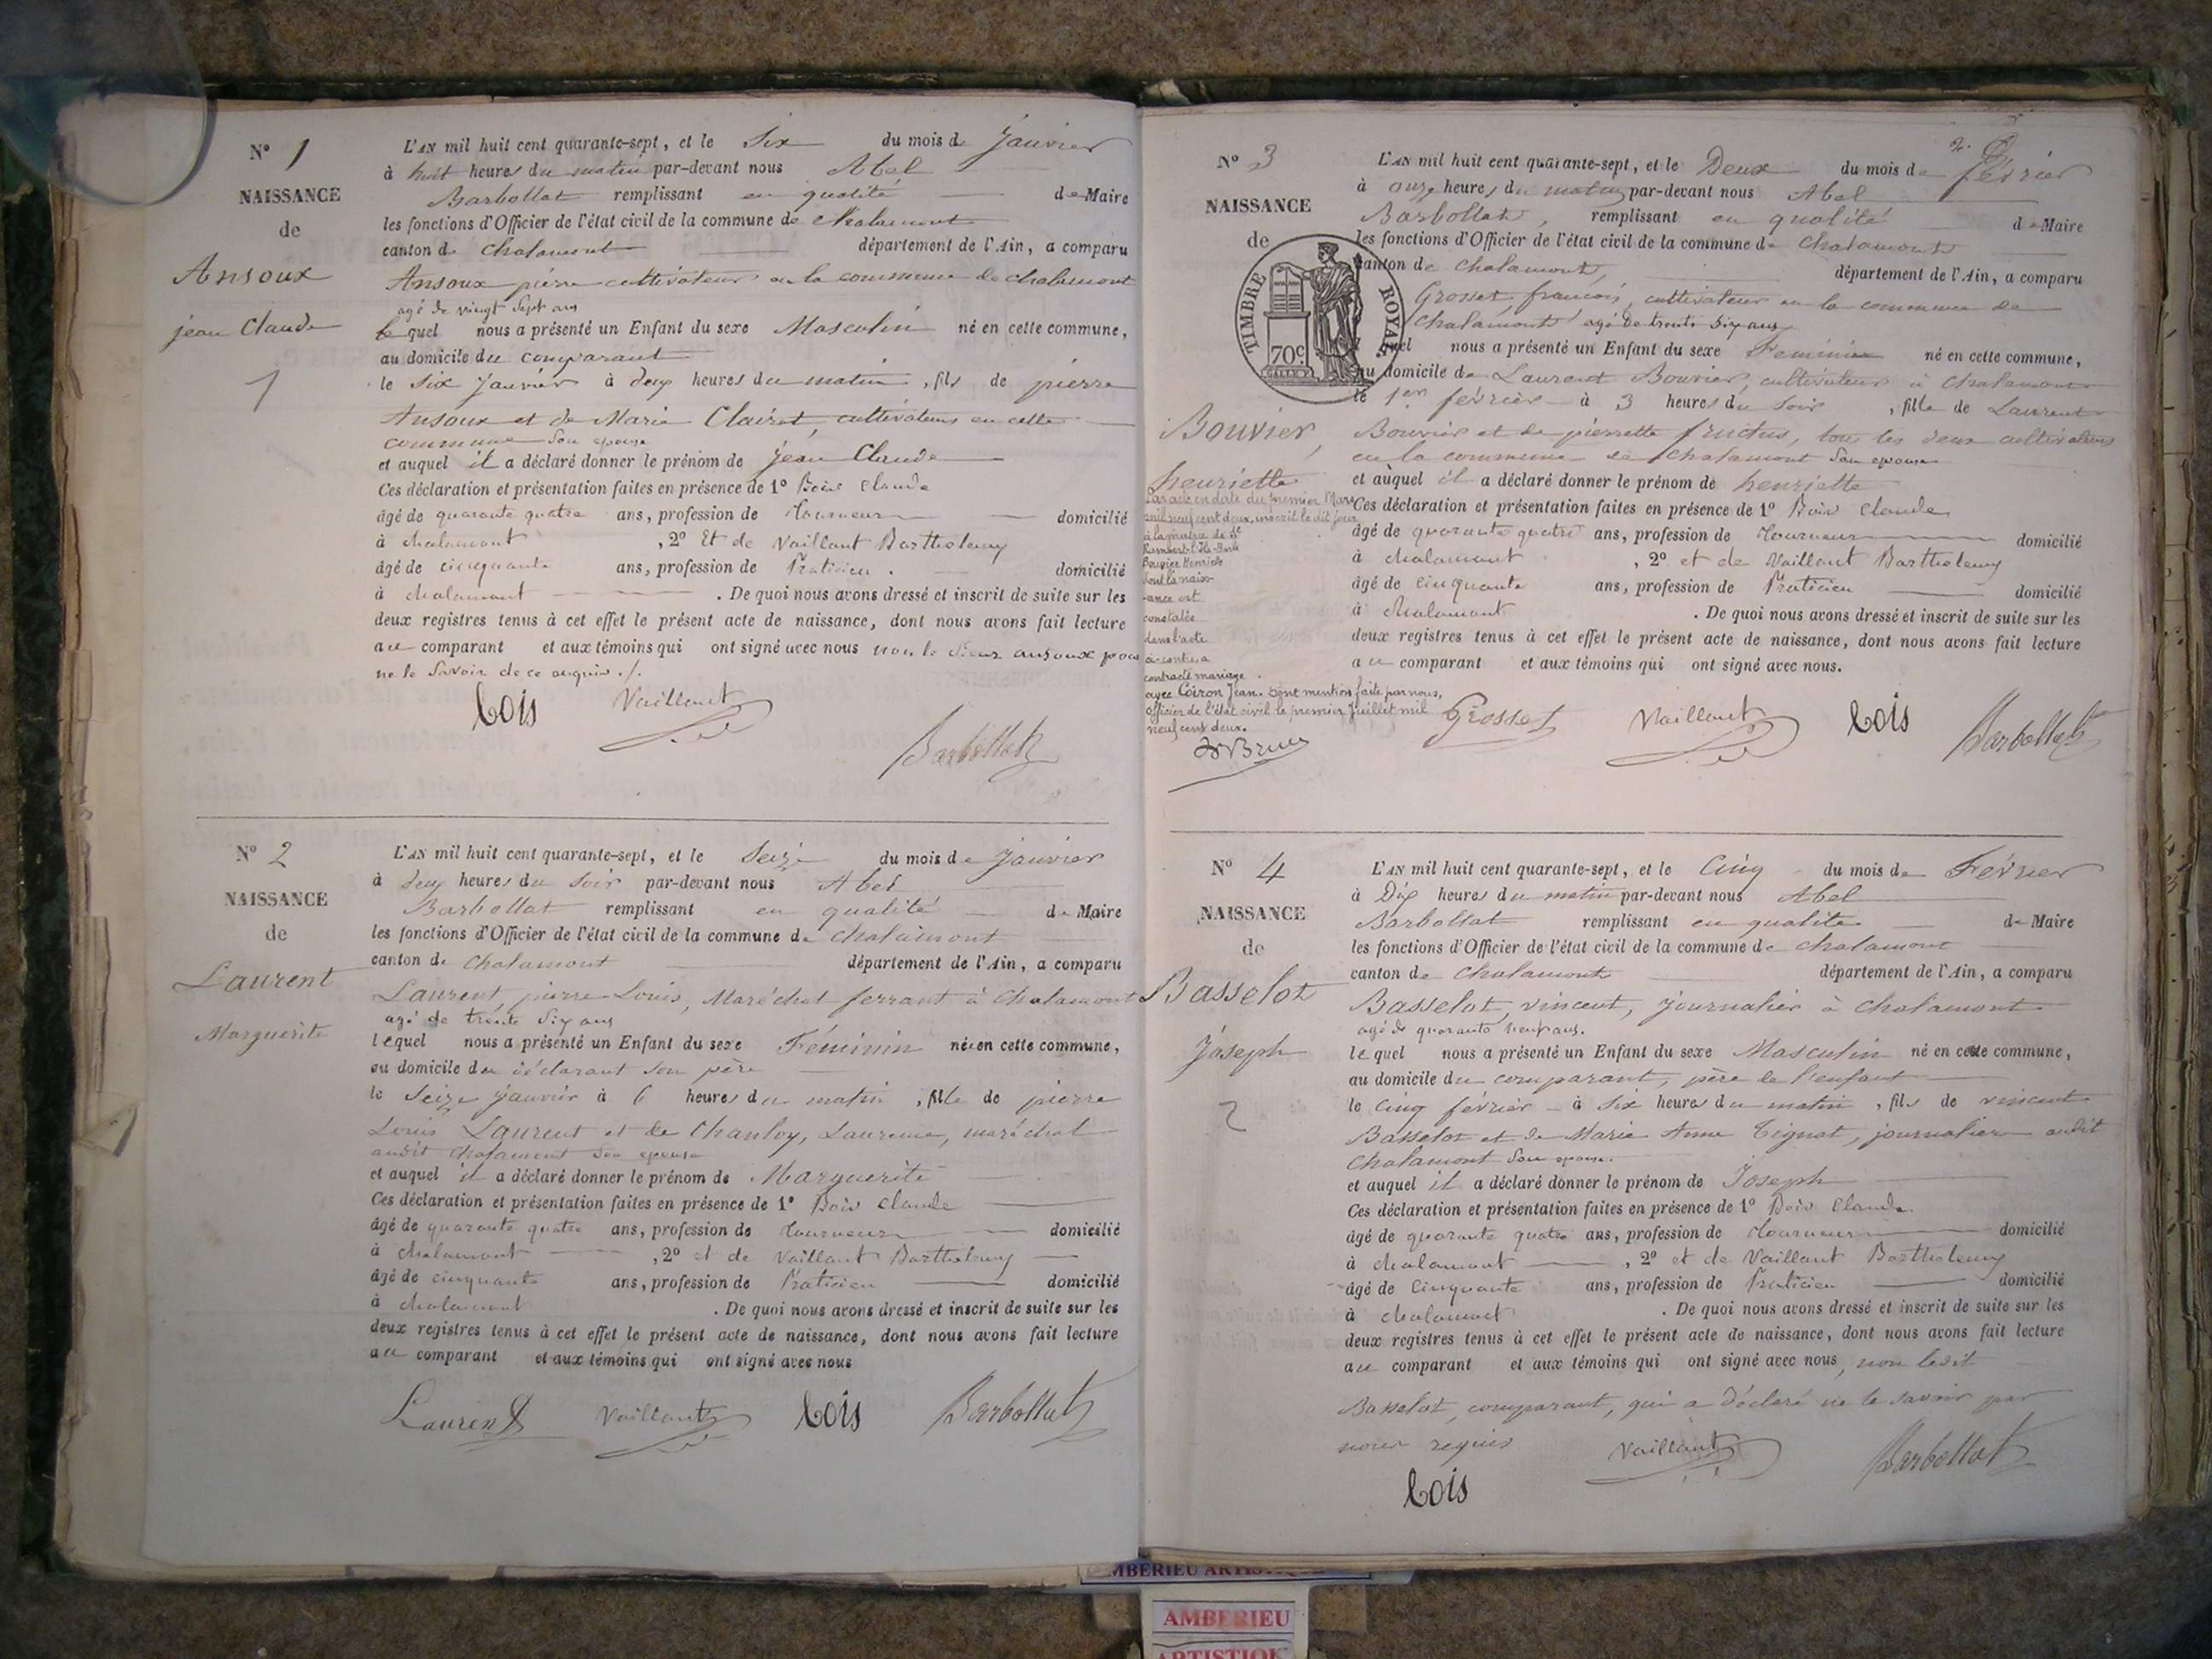 N° 1
NAISSANCE
de
Ansoux
jean Claude
1
L'AN mil huit cent quarante-sept, et le Six du mois de Janvier
à huit heures du matin par-devant nous Abel
Barbollat remplissant en qualité de Maire
les fonctions d'Officier de l'état civil de la commune de chalamont
canton de chalamont département de l'Ain, a comparu
Ansoux pierre cultivateur en la commune de chalamont
agé de vingt Sept ans
le quel nous a présenté un Enfant du sexe Masculin né en cette commune,
au domicile du comparant
le Six Janvier à deux heures du matin, fils de pierre
Ansoux et de Marie Clairet, cultivateurs en cette
commune son epouse
et auquel il a déclaré donner le prénom de Jean Claude
Ces déclaration et présentation faites en présence de 1° Bois Claude
âgé de quarante quatre ans, profession de Tourneur domicilié
à chalamont, 2° Et de Vaillant Barthelemy
âgé de cinquante ans, profession de Praticien. domicilié
à chalamont. De quoi nous avons dressé et inscrit de suite sur les
deux registres tenus à cet effet le présent acte de naissance, dont nous avons fait lecture
au comparant et aux témoins qui ont signé avec nous non le Sieur ansoux pour
ne le Savoir de ce requis ./.
bois Vaillant
Barbollat
N° 2
NAISSANCE
de
Laurent
Marguerite
L'AN mil huit cent quarante-sept, et le Seize du mois de Janvier
à deux heures du Soir par-devant nous Abel
Barbollat remplissant en qualité de Maire
les fonctions d'Officier de l'état civil de la commune de chalamont
canton de chalamont département de l'Ain, a comparu
Laurent, pierre Louis, Maréchal ferrant à Chalamont
agé de trente Six ans
lequel nous a présenté un Enfant du sexe Féminin né en cette commune,
au domicile du déclarant son père
le Seize Janvier à 6 heures du matin, fille de pierre
Louis Laurent et de Chanloy, Laurence, maréchal
audit chalamont son epouse
et auquel il a déclaré donner le prénom de Marguerite
Ces déclaration et présentation faites en présence de 1° Bois Claude
âgé de quarante quatre ans, profession de Tourneur domicilié
à chalamont, 2° et de Vaillant Barthelemy
âgé de cinquante ans, profession de Praticien domicilié
à chalamont. De quoi nous avons dressé et inscrit de suite sur les
deux registres tenus à cet effet le présent acte de naissance, dont nous avons fait lecture
au comparant et aux témoins qui ont signé avec nous
Laurent Vaillant bois Barbollat
2.
N° 3
NAISSANCE
de
TIMBRE ROYAL
70c
Bouvier,
henriette
Par acte en date du premier Mars
mil neuf cent deux, inscrit le dit jour
à la mairie de St
Rambert l'Ile-Barbe
Bouvier Henriette
dont la nais-
-ance est
constatée
dans l'acte
ci-contre, a
contracté mariage
avec Coiron Jean. Dont mention faite par nous,
officier de l'état civil le premier Juillet mil
neuf cent deux.
L'AN mil huit cent quarante-sept, et le Deux du mois de février
à onze heures du matin par-devant nous Abel
Barbollat, remplissant en qualité de Maire
les fonctions d'Officier de l'état civil de la commune de Chalamont
canton de chalamont, département de l'Ain, a comparu
Grosset françois, cultivateur en la commune de
Chalamont agé de trente Six ans
quel nous a présenté un Enfant du sexe Feminin né en cette commune,
au domicile de Laurent Bouvier, cultivateur à Chalamont
le 1er février à 3 heures du Soir, fille de Laurent
Bouvier et de pierrette fructus, tous les deux cultivateurs
en la commune de Chalamont Son epouse
et auquel il a déclaré donner le prénom de henriette
Ces déclaration et présentation faites en présence de 1° Bois Claude
âgé de quarante quatre ans, profession de Tourneur domicilié
à chalamont, 2° et de Vaillant Barthelemy
âgé de cinquante ans, profession de Praticien domicilié
à chalamont. De quoi nous avons dressé et inscrit de suite sur les
deux registres tenus à cet effet le présent acte de naissance, dont nous avons fait lecture
au comparant et aux témoins qui ont signé avec nous.
Grosset Vaillant bois Barbollat
N° 4
NAISSANCE
de
Basselot
Joseph
2
L'AN mil huit cent quarante-sept, et le Cinq du mois de Février
à Dix heures du matin par-devant nous Abel
Barbollat remplissant en qualité de Maire
les fonctions d'Officier de l'état civil de la commune de chalamont
canton de Chalamont département de l'Ain, a comparu
Basselot, vincent, journalier à chalamont
agé de quarante neuf ans.
lequel nous a présenté un Enfant du sexe Masculin né en cette commune,
au domicile du comparant, père de l'enfant
le Cinq février à Six heures du matin, fils de vincent
Basselot et de Marie Anne Tignat, journalier audit
Chalamont Son epouse.
et auquel il a déclaré donner le prénom de Joseph
Ces déclaration et présentation faites en présence de 1° Bois Claude
âgé de quarante quatre ans, profession de Tourneur domicilié
à chalamont, 2° et de Vaillant Barthelemy
âgé de Cinquante ans, profession de Praticien domicilié
à chalamont. De quoi nous avons dressé et inscrit de suite sur les
deux registres tenus à cet effet le présent acte de naissance, dont nous avons fait lecture
au comparant et aux témoins qui ont signé avec nous, non ledit
Basselot, comparant, qui a Déclaré ne le savoir par
nous requis Vaillant Barbollat
bois
AMBERIEU ARTISTIQUE
AMBERIEU
ARTISTIQUE